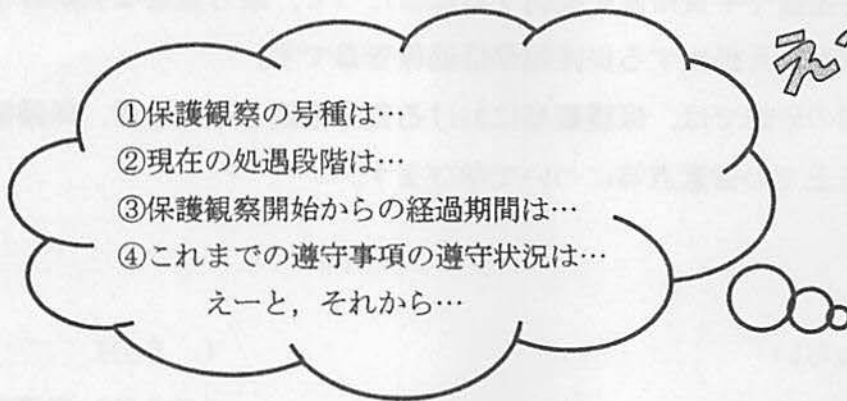 ①保護観察の号種は…
②現在の処遇段階は…
③保護観察開始からの経過期間は…
④これまでの遵守事項の遵守状況は…
えーと，それから…
え